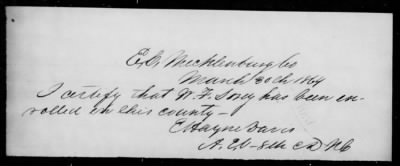 E. O. Mecklenburg Co
March 30th 1864
I certify that W. F. Sony has been en-
rolled in this county—
E Hayne Davis
A. E. O - 8th CD NC